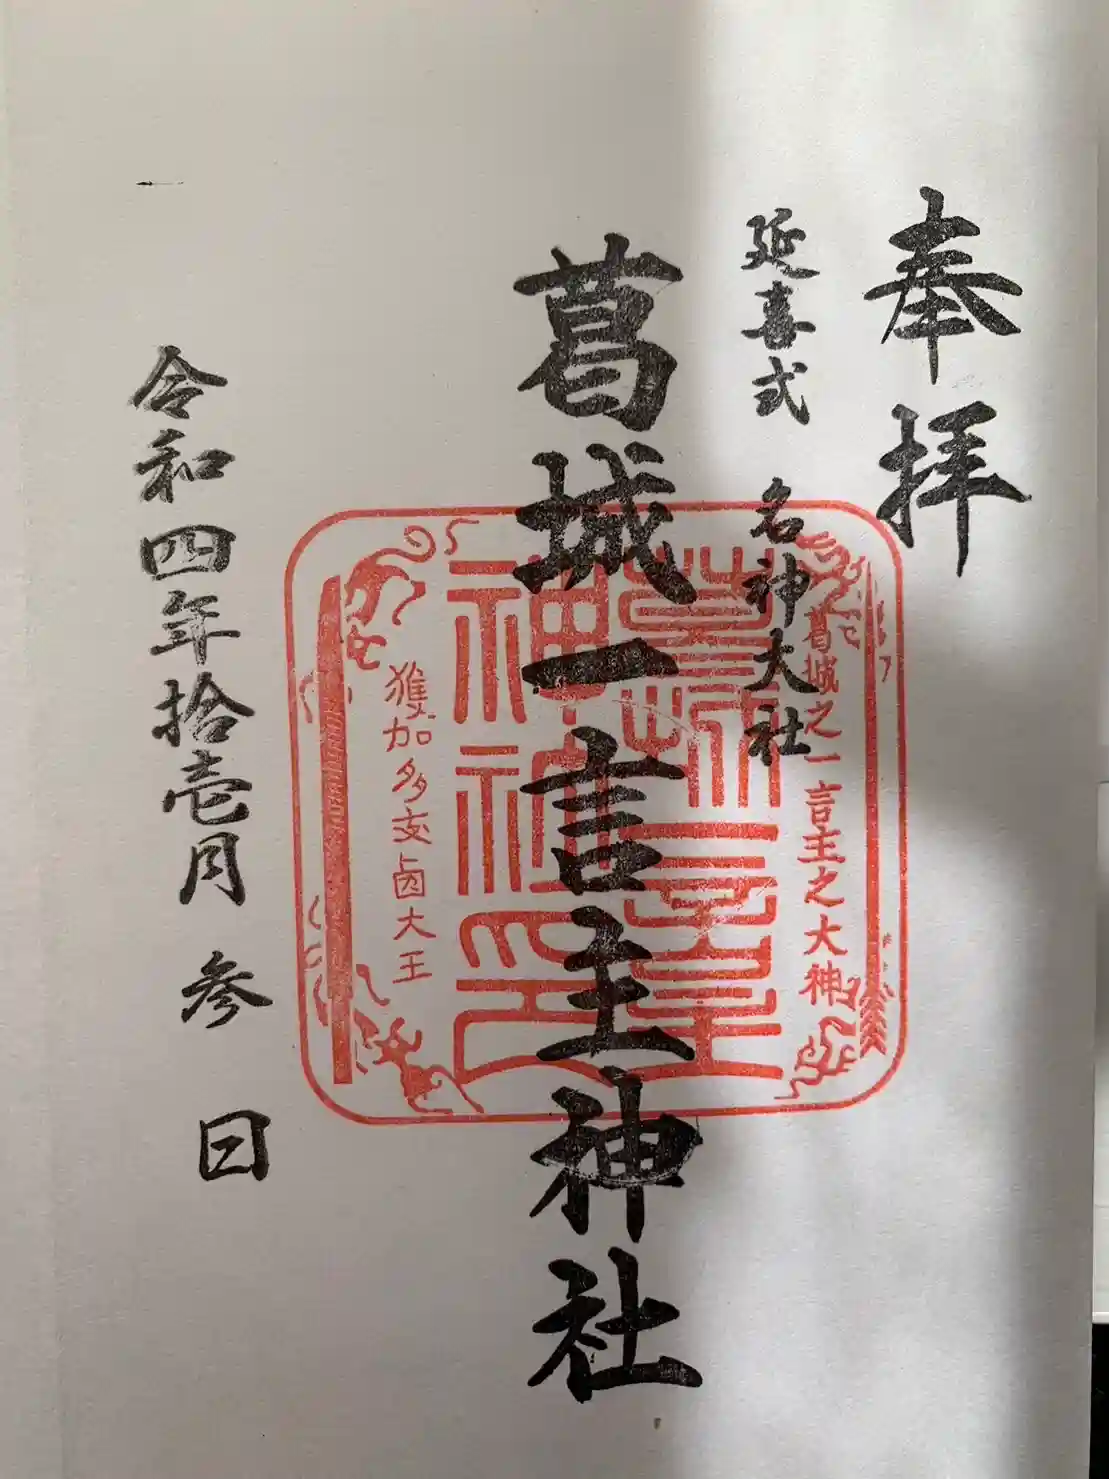 奉拝
延喜式 名神大社
葛城一言主神社
葛城之一言主之大神
獲加多支鹵大王
葛城一言主
神社印
令和四年拾壱月参日